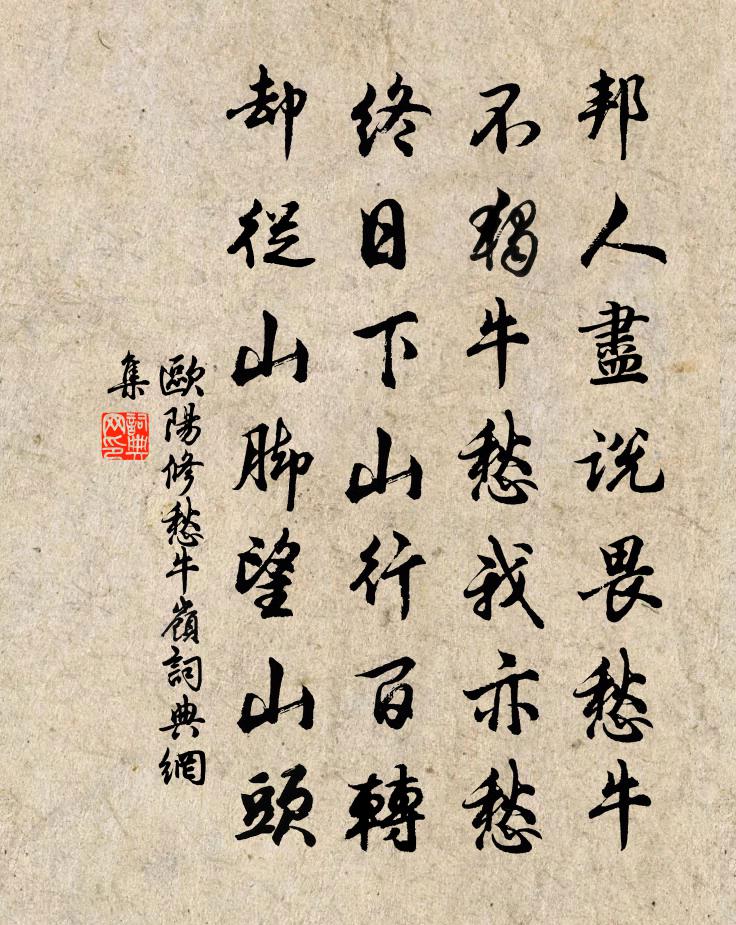 邦人盡說畏愁牛
不獨牛愁我亦愁
終日下山行百轉
却從山脚望山頭
歐陽修愁牛嶺詞典網
集
詞典
网印